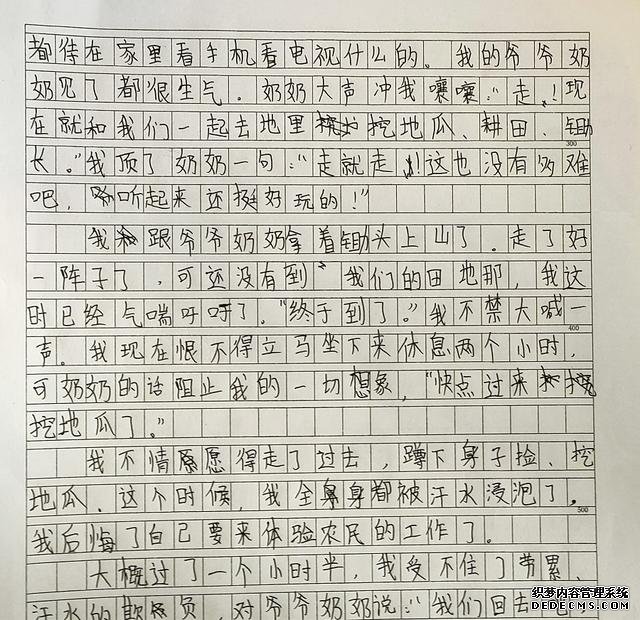 都待在家里看手机看电视什么的。我的爷爷奶
奶见了都很生气。奶奶大声冲我嚷嚷:“走!现
在就和我们一起去地里挖地瓜、耕田、锄
300
长。”我顶了奶奶一句:“走就走!这也没有多难
吧,听起来还挺好玩的!”
我跟爷爷奶奶拿着锄头上山了。走了好
一阵子了,可还没有到我们的田地那,我这
时已经气喘吁吁了。“终于到了。”我不禁大喊一
400
声。我现在恨不得立马坐下来休息两个小时,
可奶奶的话阻止我的一切想象,“快点过来挖
挖地瓜了。”
我不情愿得走了过去,蹲下身子捡、挖
地瓜。这个时候,我全身都被汗水浸泡了。
500
我后悔了自己要来体验农民的工作了。
大概过了一个小时半,我受不住了劳累、
汗水的欺负,对爷爷奶奶说:“我们回去吧,
织梦内容管理系统
DEDECMS.COM